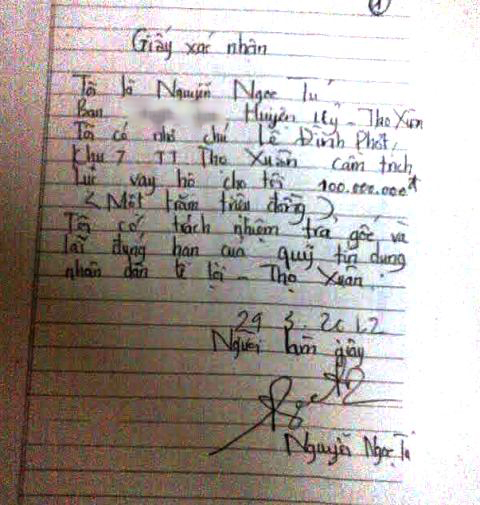 1
Giấy xác nhận
Tôi là Nguyễn Ngọc Tú
Ban Huyện ủy - Thọ Xuân
Tôi có nhờ chú Lê Đình Phát,
Khu 7 TT Thọ Xuân cầm trích
Lục vay hộ cho tôi 100.000.000đ
(Một trăm triệu đồng),
Tôi có trách nhiệm trả gốc và
lãi đúng hạn của quỹ tín dụng
nhân dân tề lợi - Thọ Xuân.
29 3. 2012
Người làm giấy
Nguyễn Ngọc Tú